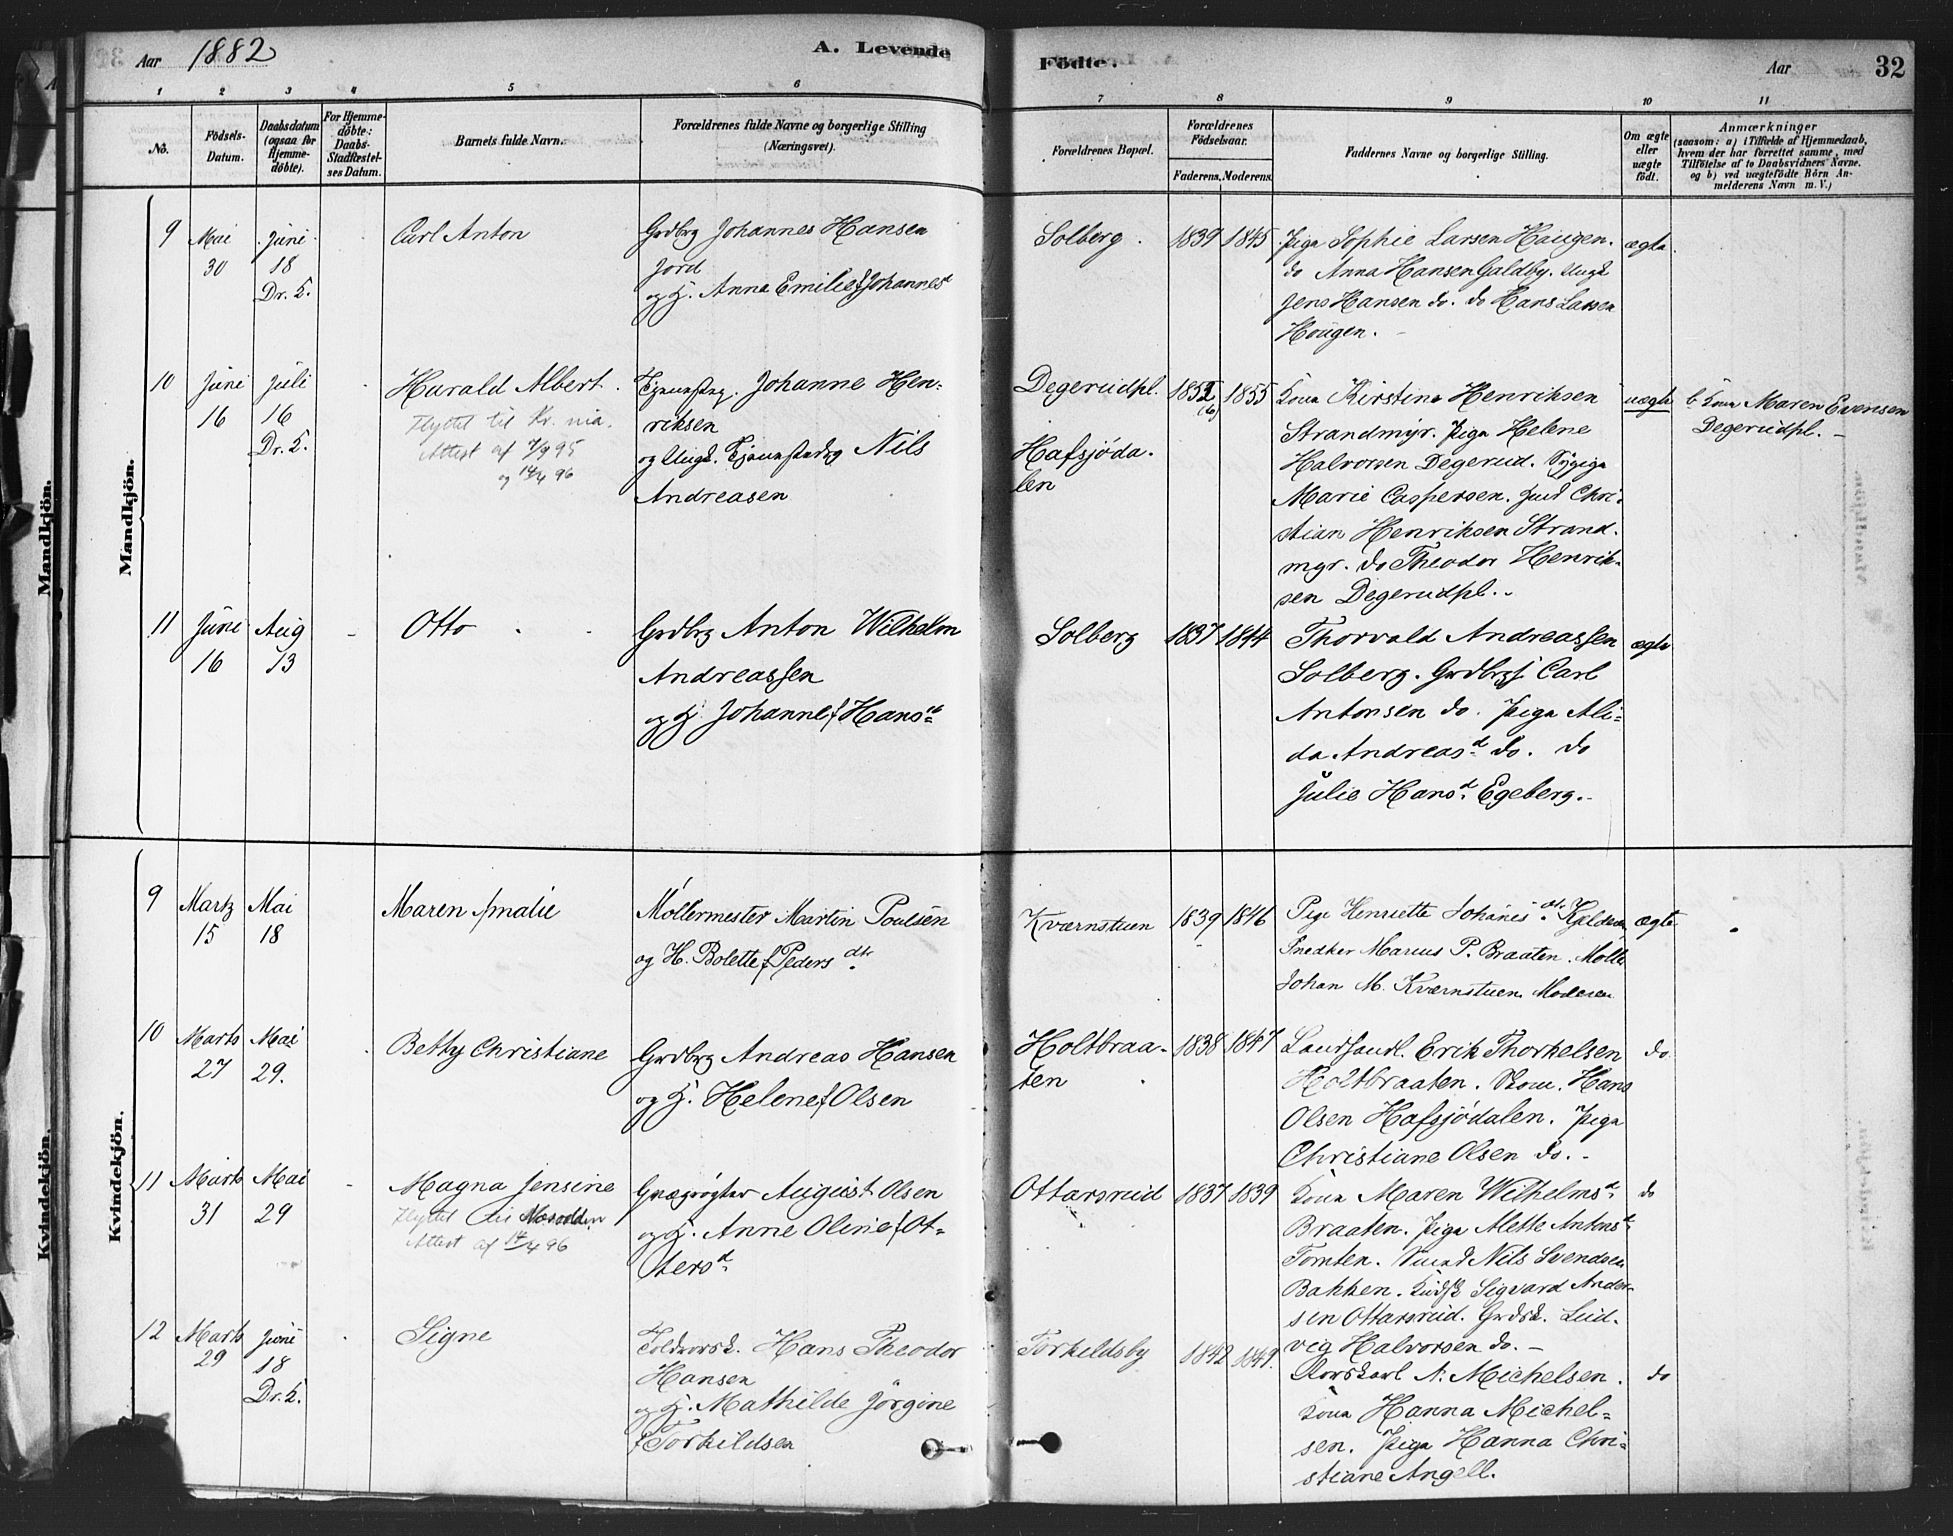 Aar 1882 A. Levende Födte. Aar 32
1 2 3 4 5 6 7 8 9 10 11
No. Födsels-Datum. Daabsdatum (ogsaa for Hjemme-döbte). For Hjemme-döbte: Daabs-Stadfæstel-ses Datum. Barnets fulde Navn. Forældrenes fulde Navne og borgerlige Stilling (Næringsvei). Forældrenes Bopæl. Forældrenes Födselsaar. Faderens. Moderens. Faddernes Navne og borgerlige Stilling. Om ægte eller uægte födt. Anmærkninger (saasom: a) i Tilfælde af Hjemmedaab, hvem der har forrettet samme, med Tilföielse af to Daabsvidners Navne. og b) ved uægtefödte Börn An-melderens Navn m. V.)
Mandkjön.
Mandkjön.
9 Mai 30 Juni 18 Dr. K. Carl Anton
Grdbrg Johannes Hansen
Jord
og H. Anna Emilie f Johannesd
Solberg. 1839 1845
Piga Sophie Larsen Haugen.
do Anna Hansen Galdby. Ungk
Jens Hansen do. do Hans Larsen
Hougen. -
ægte.
10 Juni 16 Juli 16 Dr. K. Harald Albert.
Flyttet til Kr. nia.
Attest af 7/9 95
og 14/4 96
Johanne Hen-
riksen
og Ungk. Nils
Andreasen
Degerudpl.
Hafsjöda-
len
1855
Kona Kirstine Henriksen
Strandmyr. Piga Helene
Halvorsen Degerud. Sypiga
Marie Caspersen. Chri-
stian Henriksen Strand-
myr. do Theodor Henrik-
sen Degerudpl. -
uægte
b. Kona Maren Evensen
Degerudpl. -
11 Juni 16 Aug 13 - Otto
Grdbrg Anton Wilhelm
Andreassen
og H. Johanne f Hansd
Solberg 1837 1844
Thorvald Andreassen
Solberg. Grdbrgs. Carl
Antonsen do. Piga Ali-
da Andreasd do. do
Julie Hansd. Egeberg. -
ægte
Kvindekjön.
Kvindekjön.
9 Martz 15 Mai 18 Maren Amalie
Möllermester Martin Poulsen
og H. Bolette f Peders dtr.
Kværnstuen 1839 1846
Pige Henriette Johanes dtr.
Snedker Marius P. Braaten. Mölle
Johan M. Kværnstuen Moderen
ægte
10 Marts 27 Mai 29. Betty Christiane
Grdbrg Andreas Hansen
og H. Helene f Olsen
Holtbraa-
ten
1838 1847
Landhandl. Erik Thorkelsen
Holtbraaten. Skom. Hans
Olsen Hafsjödalen. Piga
Christiane Olsen do. -
do
11 Marts 31 Mai 29 - Magna Jensine
Flyttet til Nesodden
Attest af 14/4 96
August Olsen
og H. Anne Oline f Ot-
tersd
Ottarsrud 1837 1839
Kona Maren Wilhelmsd
Braaten. Piga Alette Antonsd
Tomten. Nils Svendsen
Bakken. Kudsk Sigvard Ander-
sen Ottarsrud. Grdsk. Lud-
vig Halvorsen do. -
do
12 Marts 29 Juni 18 Dr. K. Signe
Toldvorsk. Hans Theodor
Hansen
og H. Mathilde Jörgine
f Torkildsen
Torkildsby 1842 1849.
N. Michelsen.
Kona Hanna Michel-
sen. Piga Hanna Chri-
stiane Angell.
do